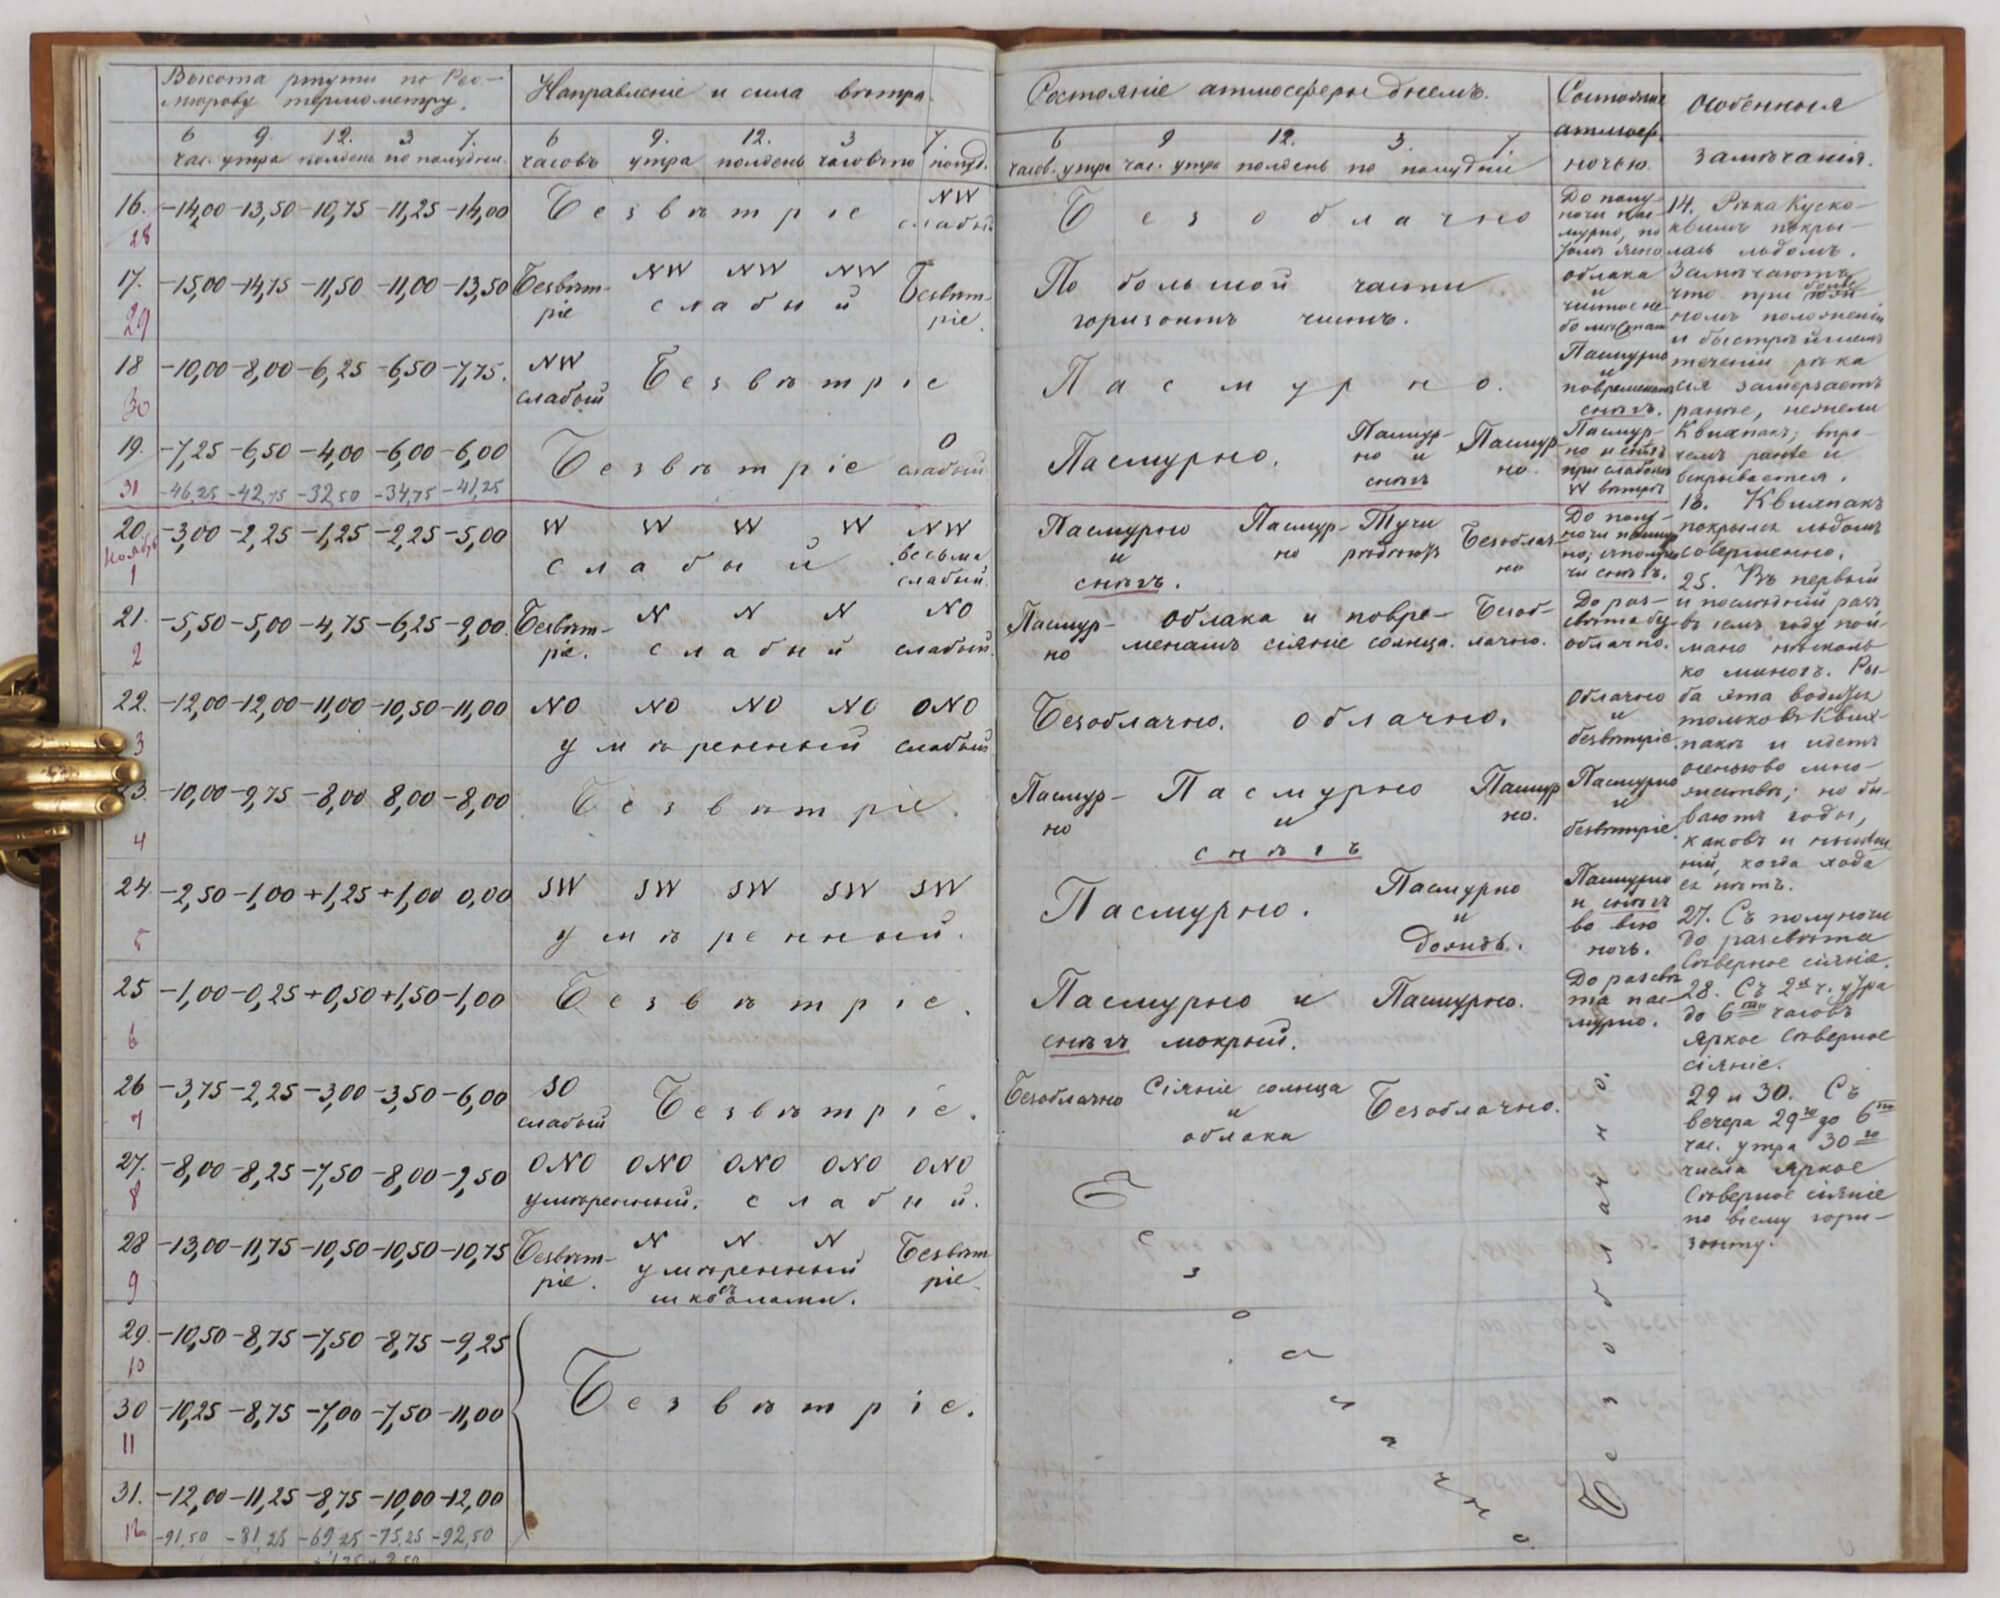 Высота ртути по Рео-
мюрову термометру.
6 9. 12. 3 7.
час. утра полдень по полудни.
Направленіе и сила вѣтра.
6 9. 12. 3 7.
часовъ утра полдень часовъ по полуд.
16. -14,00 -13,50 -10,75 -11,25 -14,00 Безвѣтріе NW
28 слабый
17. -15,00 -14,75 -11,50 -11,00 -13,50 Безвѣт- NW NW NW Безвѣт-
29 ріе слабый ріе.
18 -10,00 -8,00 -6,25 -6,50 -7,75. NW Безвѣтріе
30 слабый
19. -7,25 -6,50 -4,00 -6,00 -6,00 Безвѣтріе О
слабый
31 -46,25 -42,75 -32,50 -34,75 -41,25
20. -3,00 -2,25 -1,25 -2,25 -5,00 W W W W NW
Ноябрь слабый весьма
1 слабый.
21. -5,50 -5,00 -4,75 -6,25 -9,00 Безвѣт- N N N NO
2 ріе. слабый слабый.
22. -12,00 -12,00 -11,00 -10,50 -11,00 NO NO NO NO ONO
3 умѣренный слабый
23. -10,00 -9,75 -8,00 8,00 -8,00 Безвѣтріе.
4
24. -2,50 -1,00 +1,25 +1,00 0,00 SW SW SW SW SW
5 умѣренный.
25 -1,00 -0,25 +0,50 +1,50 -1,00 Безвѣтріе.
6
26 -3,75 -2,25 -3,00 -3,50 -6,00 SO Безвѣтріе.
7 слабый
27. -8,00 -8,25 -7,50 -8,00 -9,50 ONO ONO ONO ONO ONO
8 умѣренный. слабый.
28 -13,00 -11,75 -10,50 -10,50 -10,75 Безвѣт- N N N Безвѣт-
9 ріе. умѣренный ріе.
шквалами.
29. -10,50 -8,75 -7,50 -8,75 -9,25
10
30 -10,25 -8,75 -7,00 -7,50 -11,00 Безвѣтріе.
11
31. -12,00 -11,25 -8,75 -10,00 -12,00
12 -91,50 -81,25 -69,25 -75,25 -92,50
Состояніе атмосферы днемъ.
6 9 12. 3. 7.
часов. утра час. утра полдень по полудни
Безоблачно
По большой части
горизонтъ чистъ.
Пасмурно.
Пасмурно. Пасмур- Пасмур-
но и но.
снѣгъ
Пасмурно Пасмур- Тучи Безоблач-
и но рѣдѣютъ но
снѣгъ.
Пасмур- облака и повре- Безоб-
но менамъ сіяніе солнца. лачно.
Безоблачно. облачно.
Пасмур- Пасмурно Пасмур
но и но.
снѣгъ
Пасмурно. Пасмурно
и
дождь.
Пасмурно и Пасмурно.
снѣгъ мокрый.
Безоблачно Сіяніе солнца Безоблачно.
и
облака
Безоблачно
Состояніе
атмосф.
ночью.
До полу-
ночи пас-
мурно, по
томъ ясно
облака
и
чистое не
бо мѣстам
Пасмурно
и
повременамъ
снѣгъ.
Пасмур-
но и снѣгъ
при слабомъ
W вѣтрѣ
До полу-
ночи пасмур
но; съ полуно
чи снѣгъ.
До раз-
свѣта бу-
облачно.
Облачно
и
безвѣтріе.
Пасмурно
и
безвѣтріе.
Пасмурно
и снѣгъ
во всю
ночь.
До разсвѣ
та пас-
мурно.
Безоблачно.
особенныя
замѣчанія.
14. Рѣка Куско-
квимъ покры-
лась льдомъ.
Замѣчаютъ
что при болѣе юж
номъ положеніи
и быстрѣйшемъ
теченіи рѣка
сія замерзаетъ
ранѣе, нежели
Квихпакъ; впро-
чемъ ранѣе и
вскрывается.
18. Квихпакъ
покрылся льдомъ
совершенно.
25. Въ первый
и послѣдній разъ
въ семъ году пой
мано нѣсколь
ко миногъ. Ры-
ба эта водится
только въ Квих-
пакѣ и идетъ
осенью во мно-
жествѣ; но бы-
ваютъ годы,
каковъ и нынѣш
ній, когда хода
ея нѣтъ.
27. Съ полуночи
до разсвѣта
Сѣверное сіяніе.
28. Съ 2х ч. утра
до 6ти часовъ
яркое Сѣверное
сіяніе.
29 и 30. Съ
вечера 29го до 6ти
час. утра 30го
числа яркое
Сѣверное сіяніе
по всему гори-
зонту.